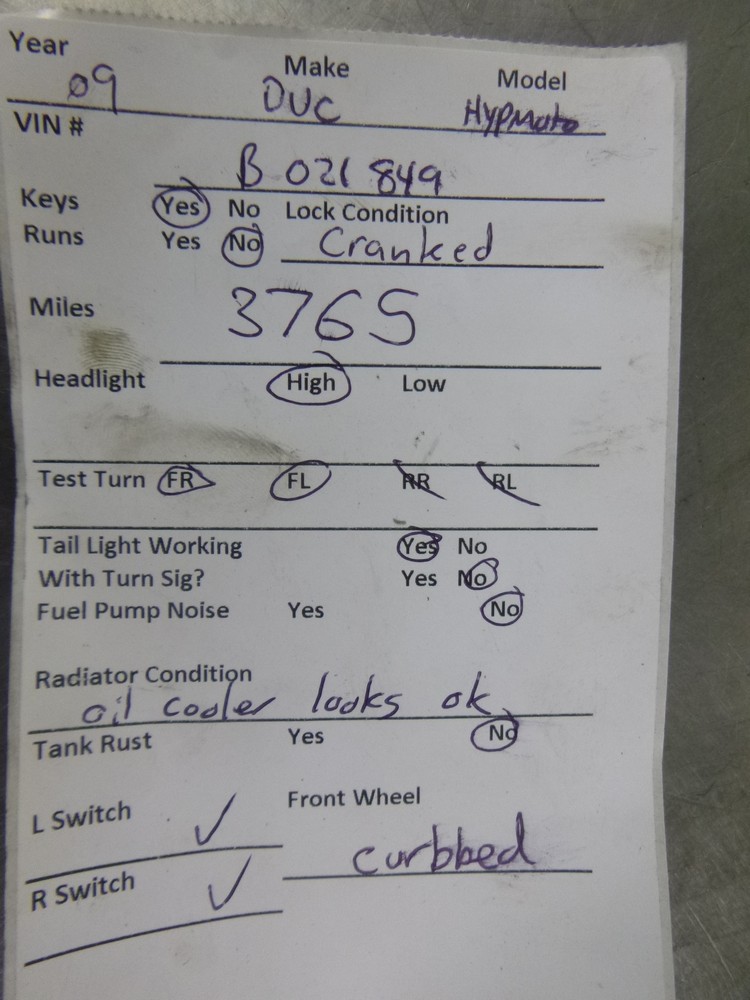 Year Make Model
09 DUC HYPMoto
VIN #
B 021 849
Keys Yes No Lock Condition
Runs Yes No Cranked
Miles 3765
Headlight High Low
Test Turn FR FL RR RL
Tail Light Working Yes No
With Turn Sig? Yes No
Fuel Pump Noise Yes No
Radiator Condition
oil cooler looks ok
Tank Rust Yes No
L Switch ✓ Front Wheel
curbbed
R Switch ✓